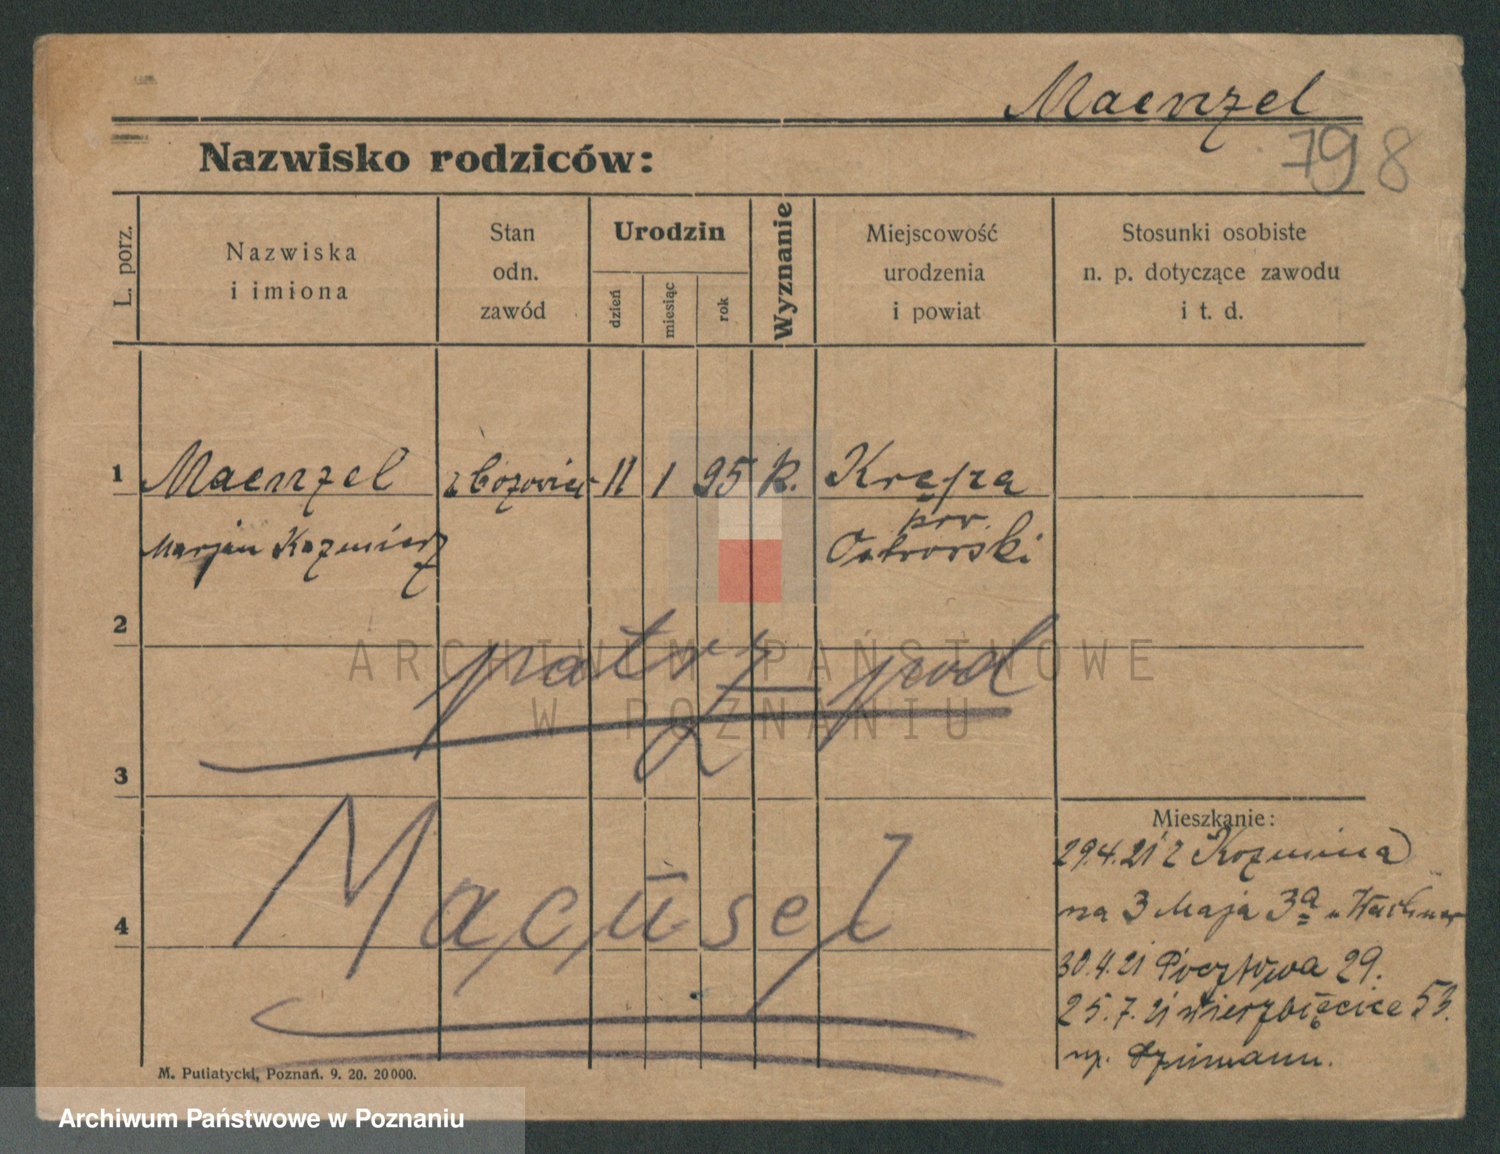 Maenzel
798
Nazwisko rodziców:
L. porz.
Nazwiska
i imiona
Stan
odn.
zawód
Urodzin
dzień
miesiąc
rok
Wyznanie
Miejscowość
urodzenia
i powiat
Stosunki osobiste
n. p. dotyczące zawodu
i t. d.
1
Maenzel
zbożowiec
11
1
95
k.
Krępa
Marjan Kazmierz
pow.
Ostrowski
2
patrz pod
ARCHIWUM PAŃSTWOWE
W POZNANIU
3
Mieszkanie:
29.4.21 z Kozmina
4
na 3 Maja 3a u
30.4.21 Pocztowa 29.
25.7.21 Wierzbięcice 53.
np.
M. Putiatycki, Poznań. 9. 20. 20000.
Archiwum Państwowe w Poznaniu